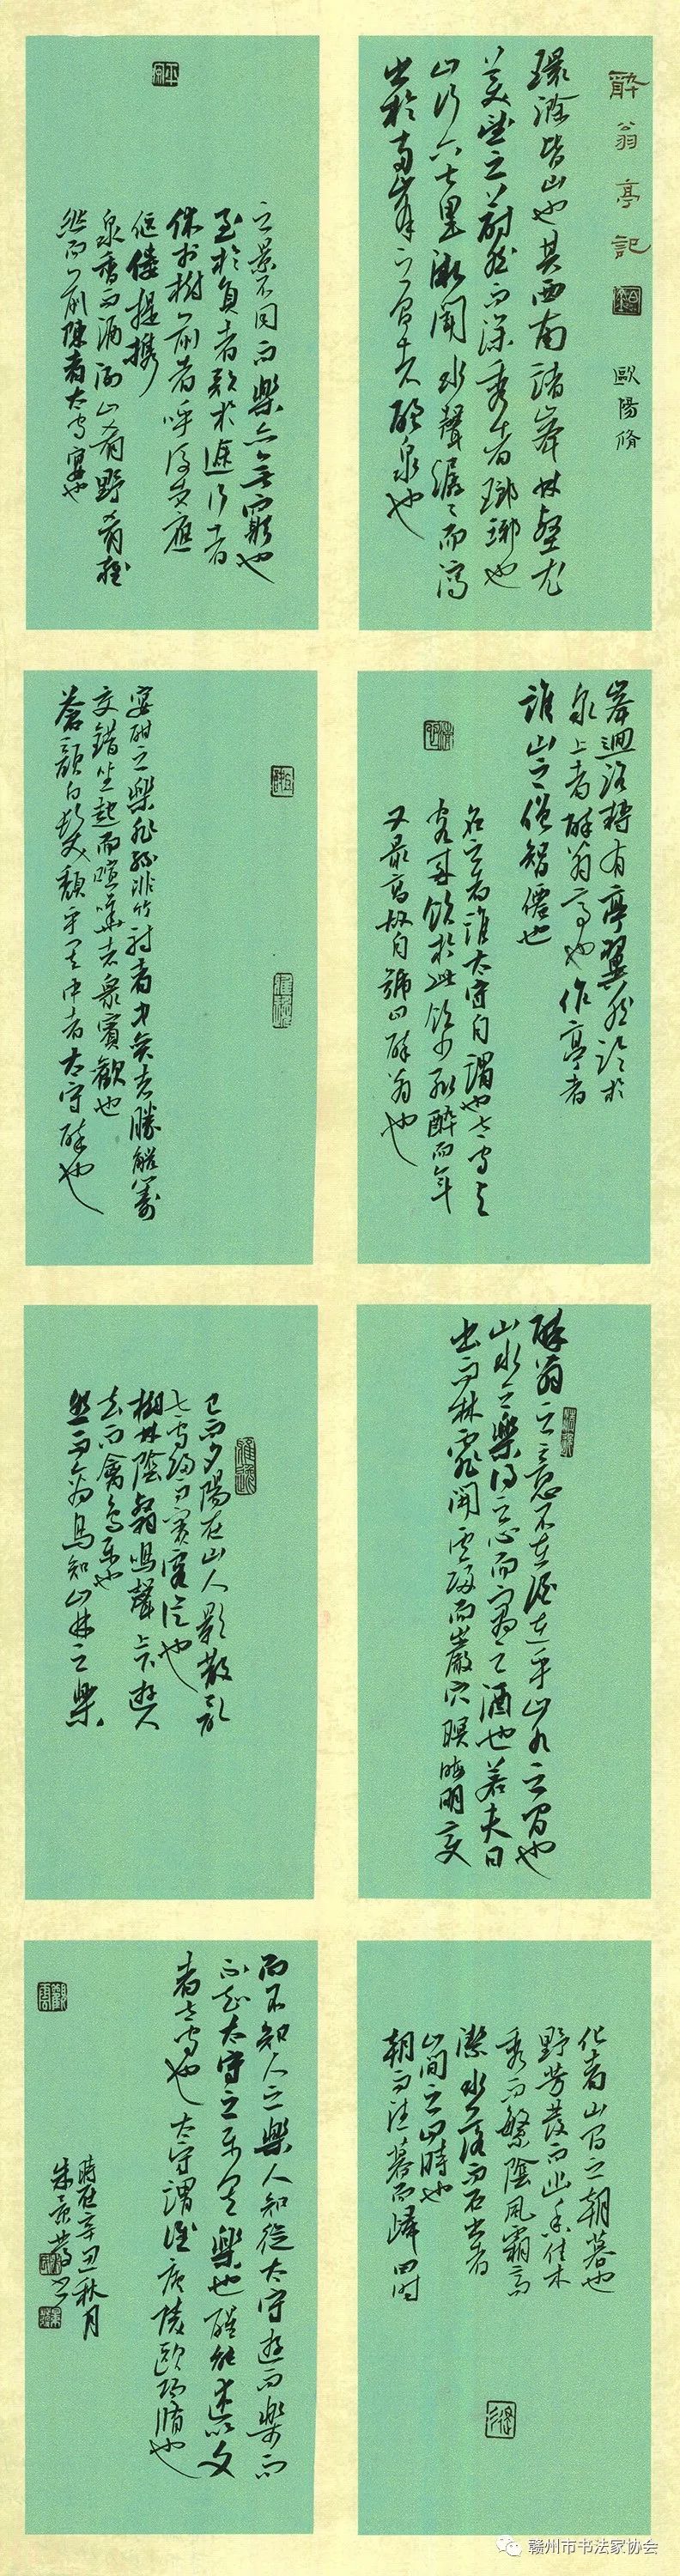 醉翁亭記
歐陽脩
環滁皆山也其西南諸峰林壑尤
美望之蔚然而深秀者瑯琊也
山行六七里漸聞水聲潺々而瀉
出於兩峰之間者釀泉也
峰迴路轉有亭翼然臨於
泉上者醉翁亭也作亭者
誰山之僧智僊也
名之者誰太守自謂也太守與
客來飲於此飲少輒醉而年
又最高故自號曰醉翁也
醉翁之意不在酒在乎山水之間也
山水之樂得之心而寓之酒也若夫日
出而林霏開雲歸而巖穴暝晦明變
化者山間之朝暮也
野芳發而幽香佳木
秀而繁陰風霜高
潔水落而石出者
山間之四時也
朝而往暮而歸四時
之景不同而樂亦無窮也
至於負者歌於途行者
休於樹前者呼後者應
傴僂提攜
泉香而酒洌山肴野蔌雜
然而前陳者太守宴也
宴酣之樂非絲非竹射者中弈者勝觥籌
交錯坐起而喧嘩者眾賓歡也
蒼顏白髮頹乎其中者太守醉也
已而夕陽在山人影散亂
太守歸而賓客從也
樹林陰翳鳴聲上下遊人
去而禽鳥樂也
然而禽鳥知山林之樂
而不知人之樂人知從太守遊而樂而
不知太守之樂其樂也醒能述以文
者太守也太守謂誰廬陵歐陽脩也
時在辛丑秋月
赣州市书法家协会